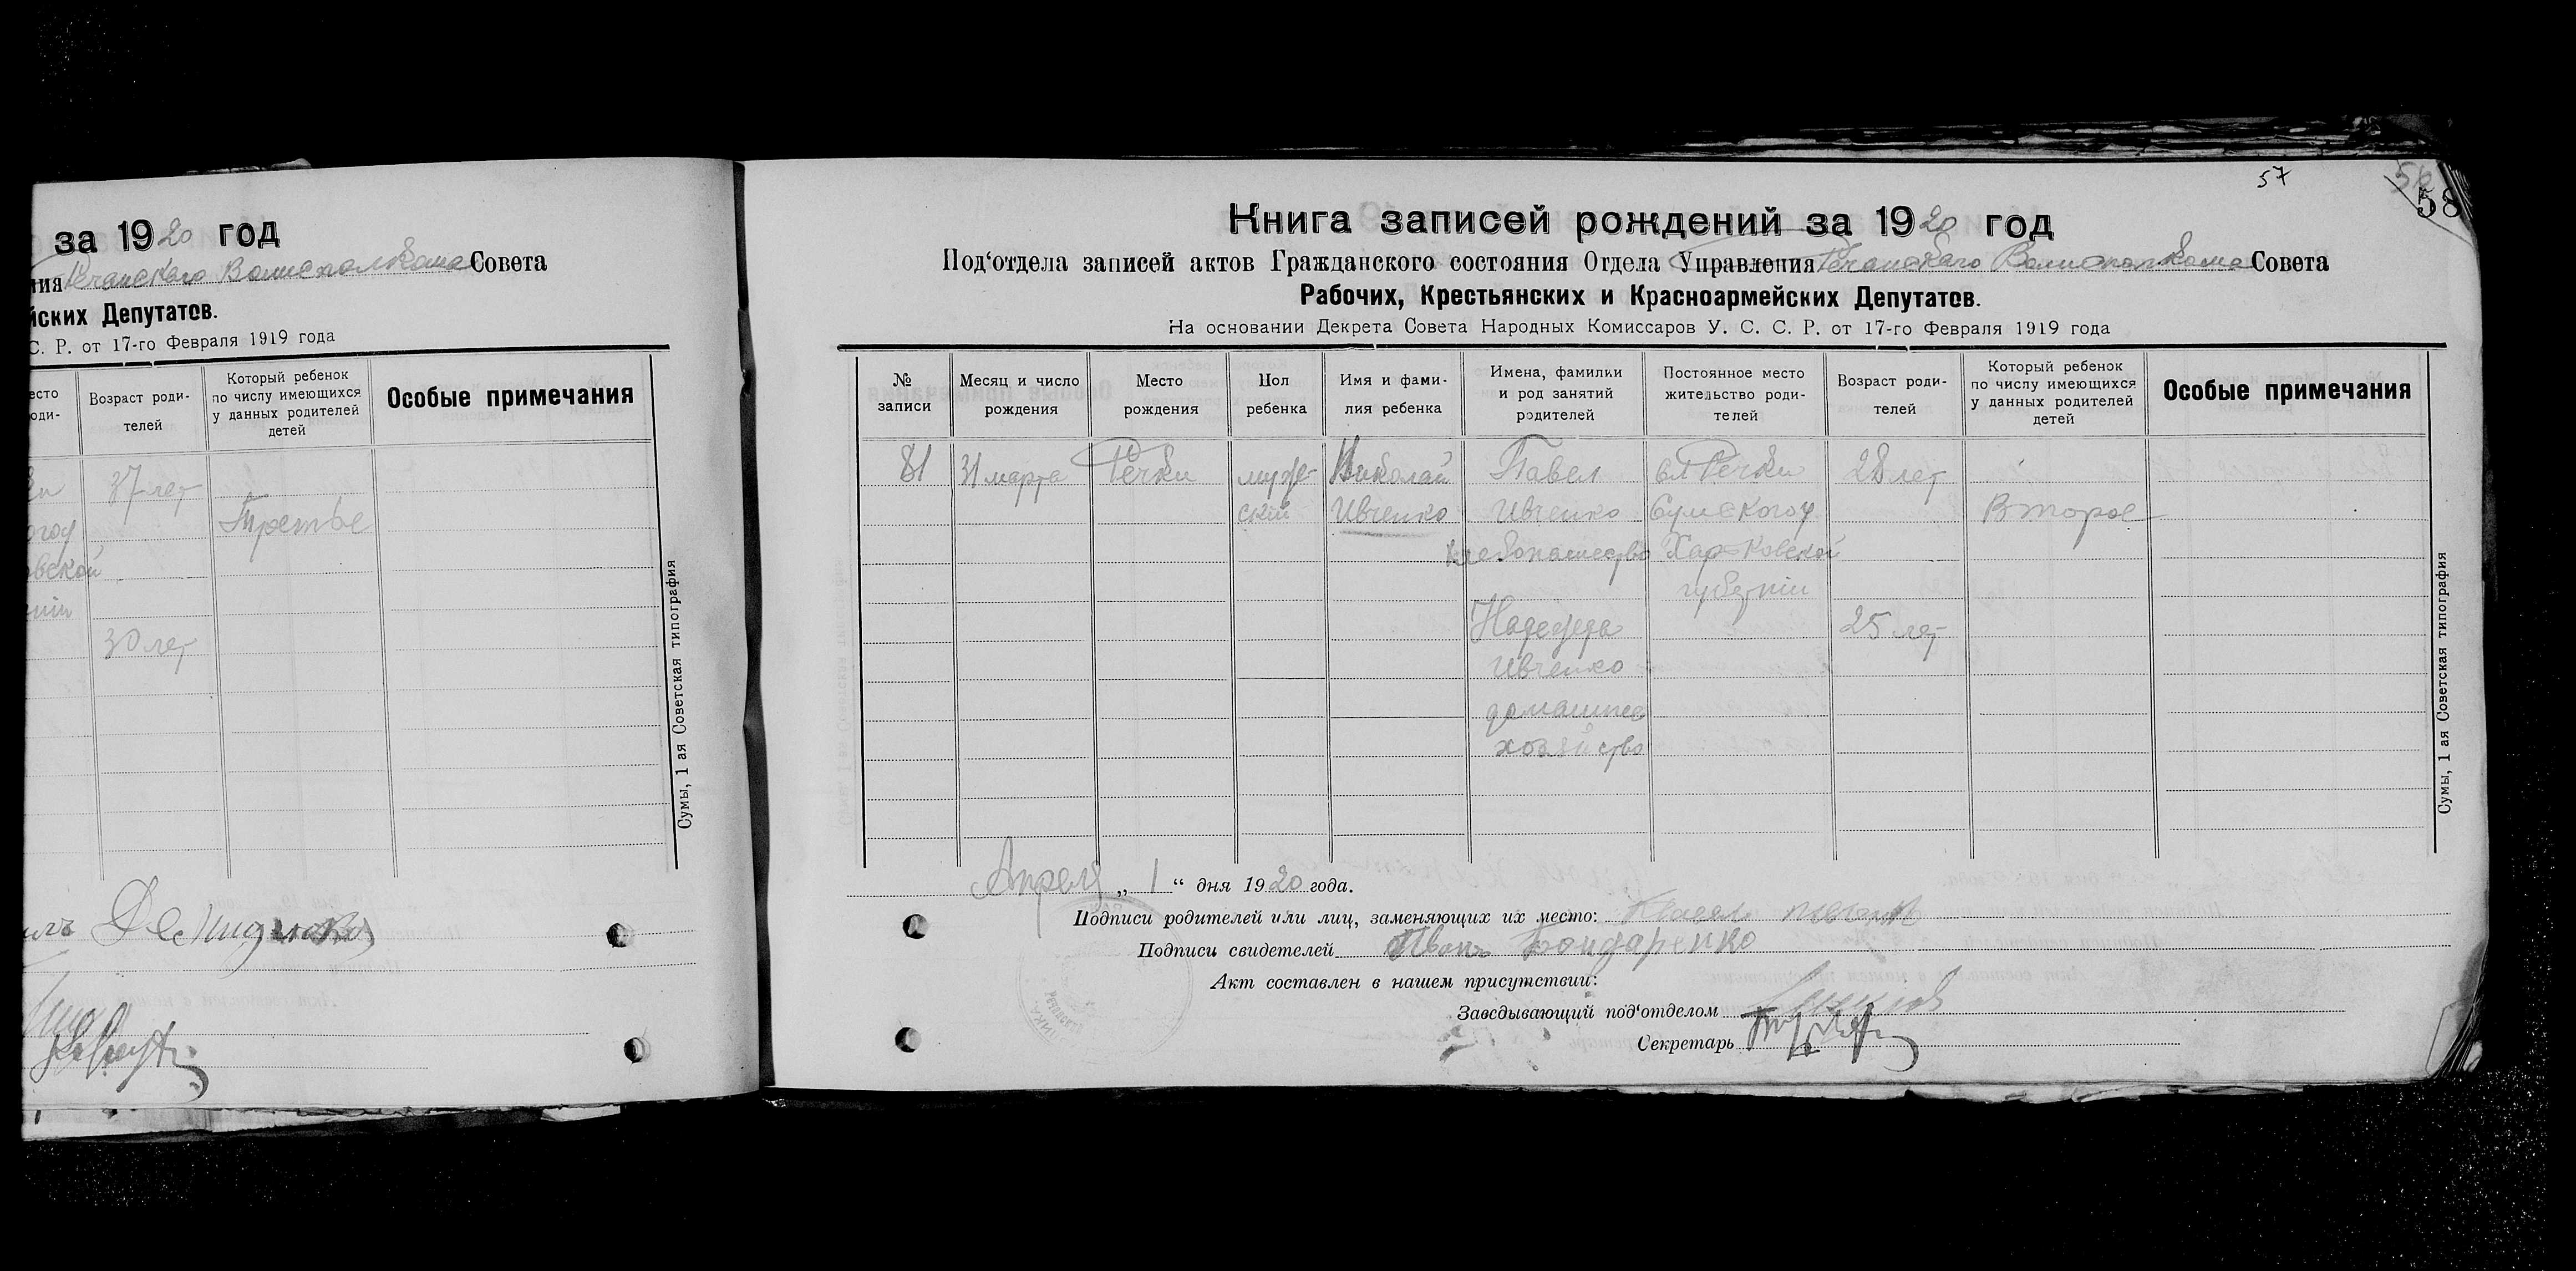 за 1920 год
Речанского Волисполкома Совета
йских Депутатов.
С. Р. от 17-го Февраля 1919 года
Возраст роди-
телей
Который ребенок
по числу имеющихся
у данных родителей
детей
Особые примечания
37 лет
Третье
30 лет
Сумы, 1 ая Советская типография
57
58
Книга записей рождений за 1920 год
Под‘отдела записей актов Гражданского состояния Отдела Управления Речанского Волисполкома Совета
Рабочих, Крестьянских и Красноармейских Депутатов.
На основании Декрета Совета Народных Комиссаров У. С. С. Р. от 17-го Февраля 1919 года
№
записи
Месяц и число
рождения
Место
рождения
Пол
ребенка
Имя и фами-
лия ребенка
Имена, фамилии
и род занятий
родителей
Постоянное место
жительство роди-
телей
Возраст роди-
телей
Который ребенок
по числу имеющихся
у данных родителей
детей
Особые примечания
81 31 марта Речки муже- Николай Павел сл Речки 28 лет
скій Ивченко Ивченко Сумского у Второе
хлебопашество Харьковской
губерніи
Надежда 25 лет
Ивченко
домашнее
хозяйство
Сумы, 1 ая Советская типография
Апреля „ 1 “ дня 1920 года.
Подписи родителей или лиц, заменяющих их место: Павел Ивченко
Подписи свидетелей Иванъ Бондаренко
Акт составлен в нашем присутствии:
Заведывающий под‘отделом
Секретарь